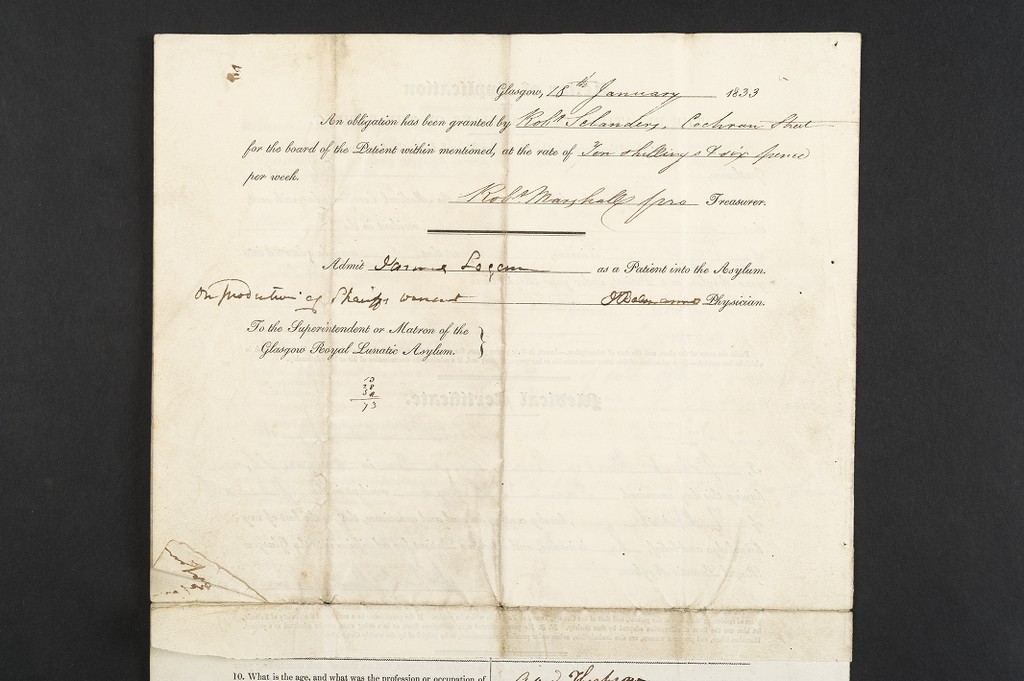 Glasgow, 18th January 1833
An obligation has been granted by Robt. Selanders, Cochran Street
for the board of the Patient within mentioned, at the rate of Ten shillings & six pence
per week.
Robt. Marshall pro Treasurer.
Admit Logan as a Patient into the Asylum.
On production of Sheriffs warrant Physician.
To the Superintendent or Matron of the
Glasgow Royal Lunatic Asylum.
73
10. What is the age, and what was the profession or occupation of